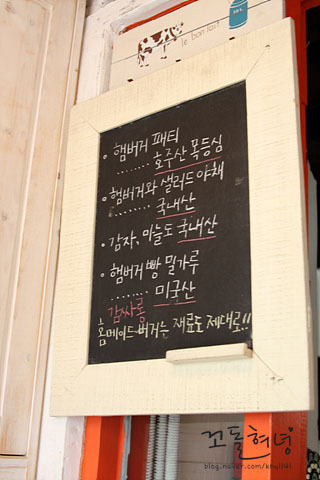 le bon lait
• 햄버거 패티
........ 호주산 목등심
• 햄버거와 샐러드 야채
........ 국내산
• 감자, 마늘도 국내산
• 햄버거 빵 밀가루
........ 미국산
감싸롱
홈메이드 버거는 재료도 제대로!!
꼬돌혀녕